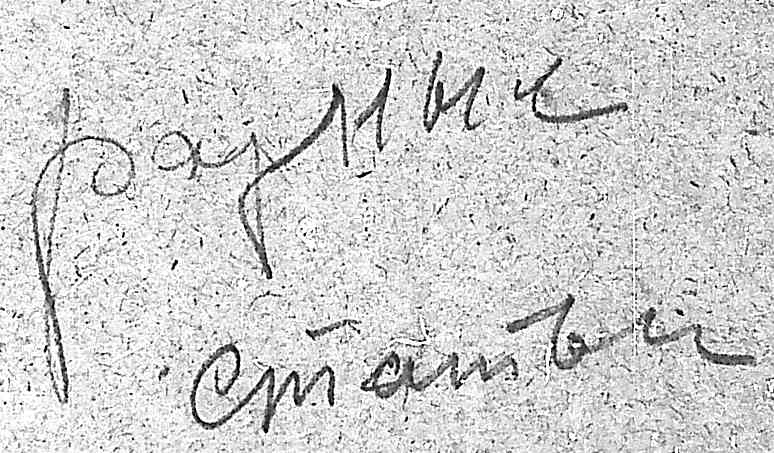 разные
статьи